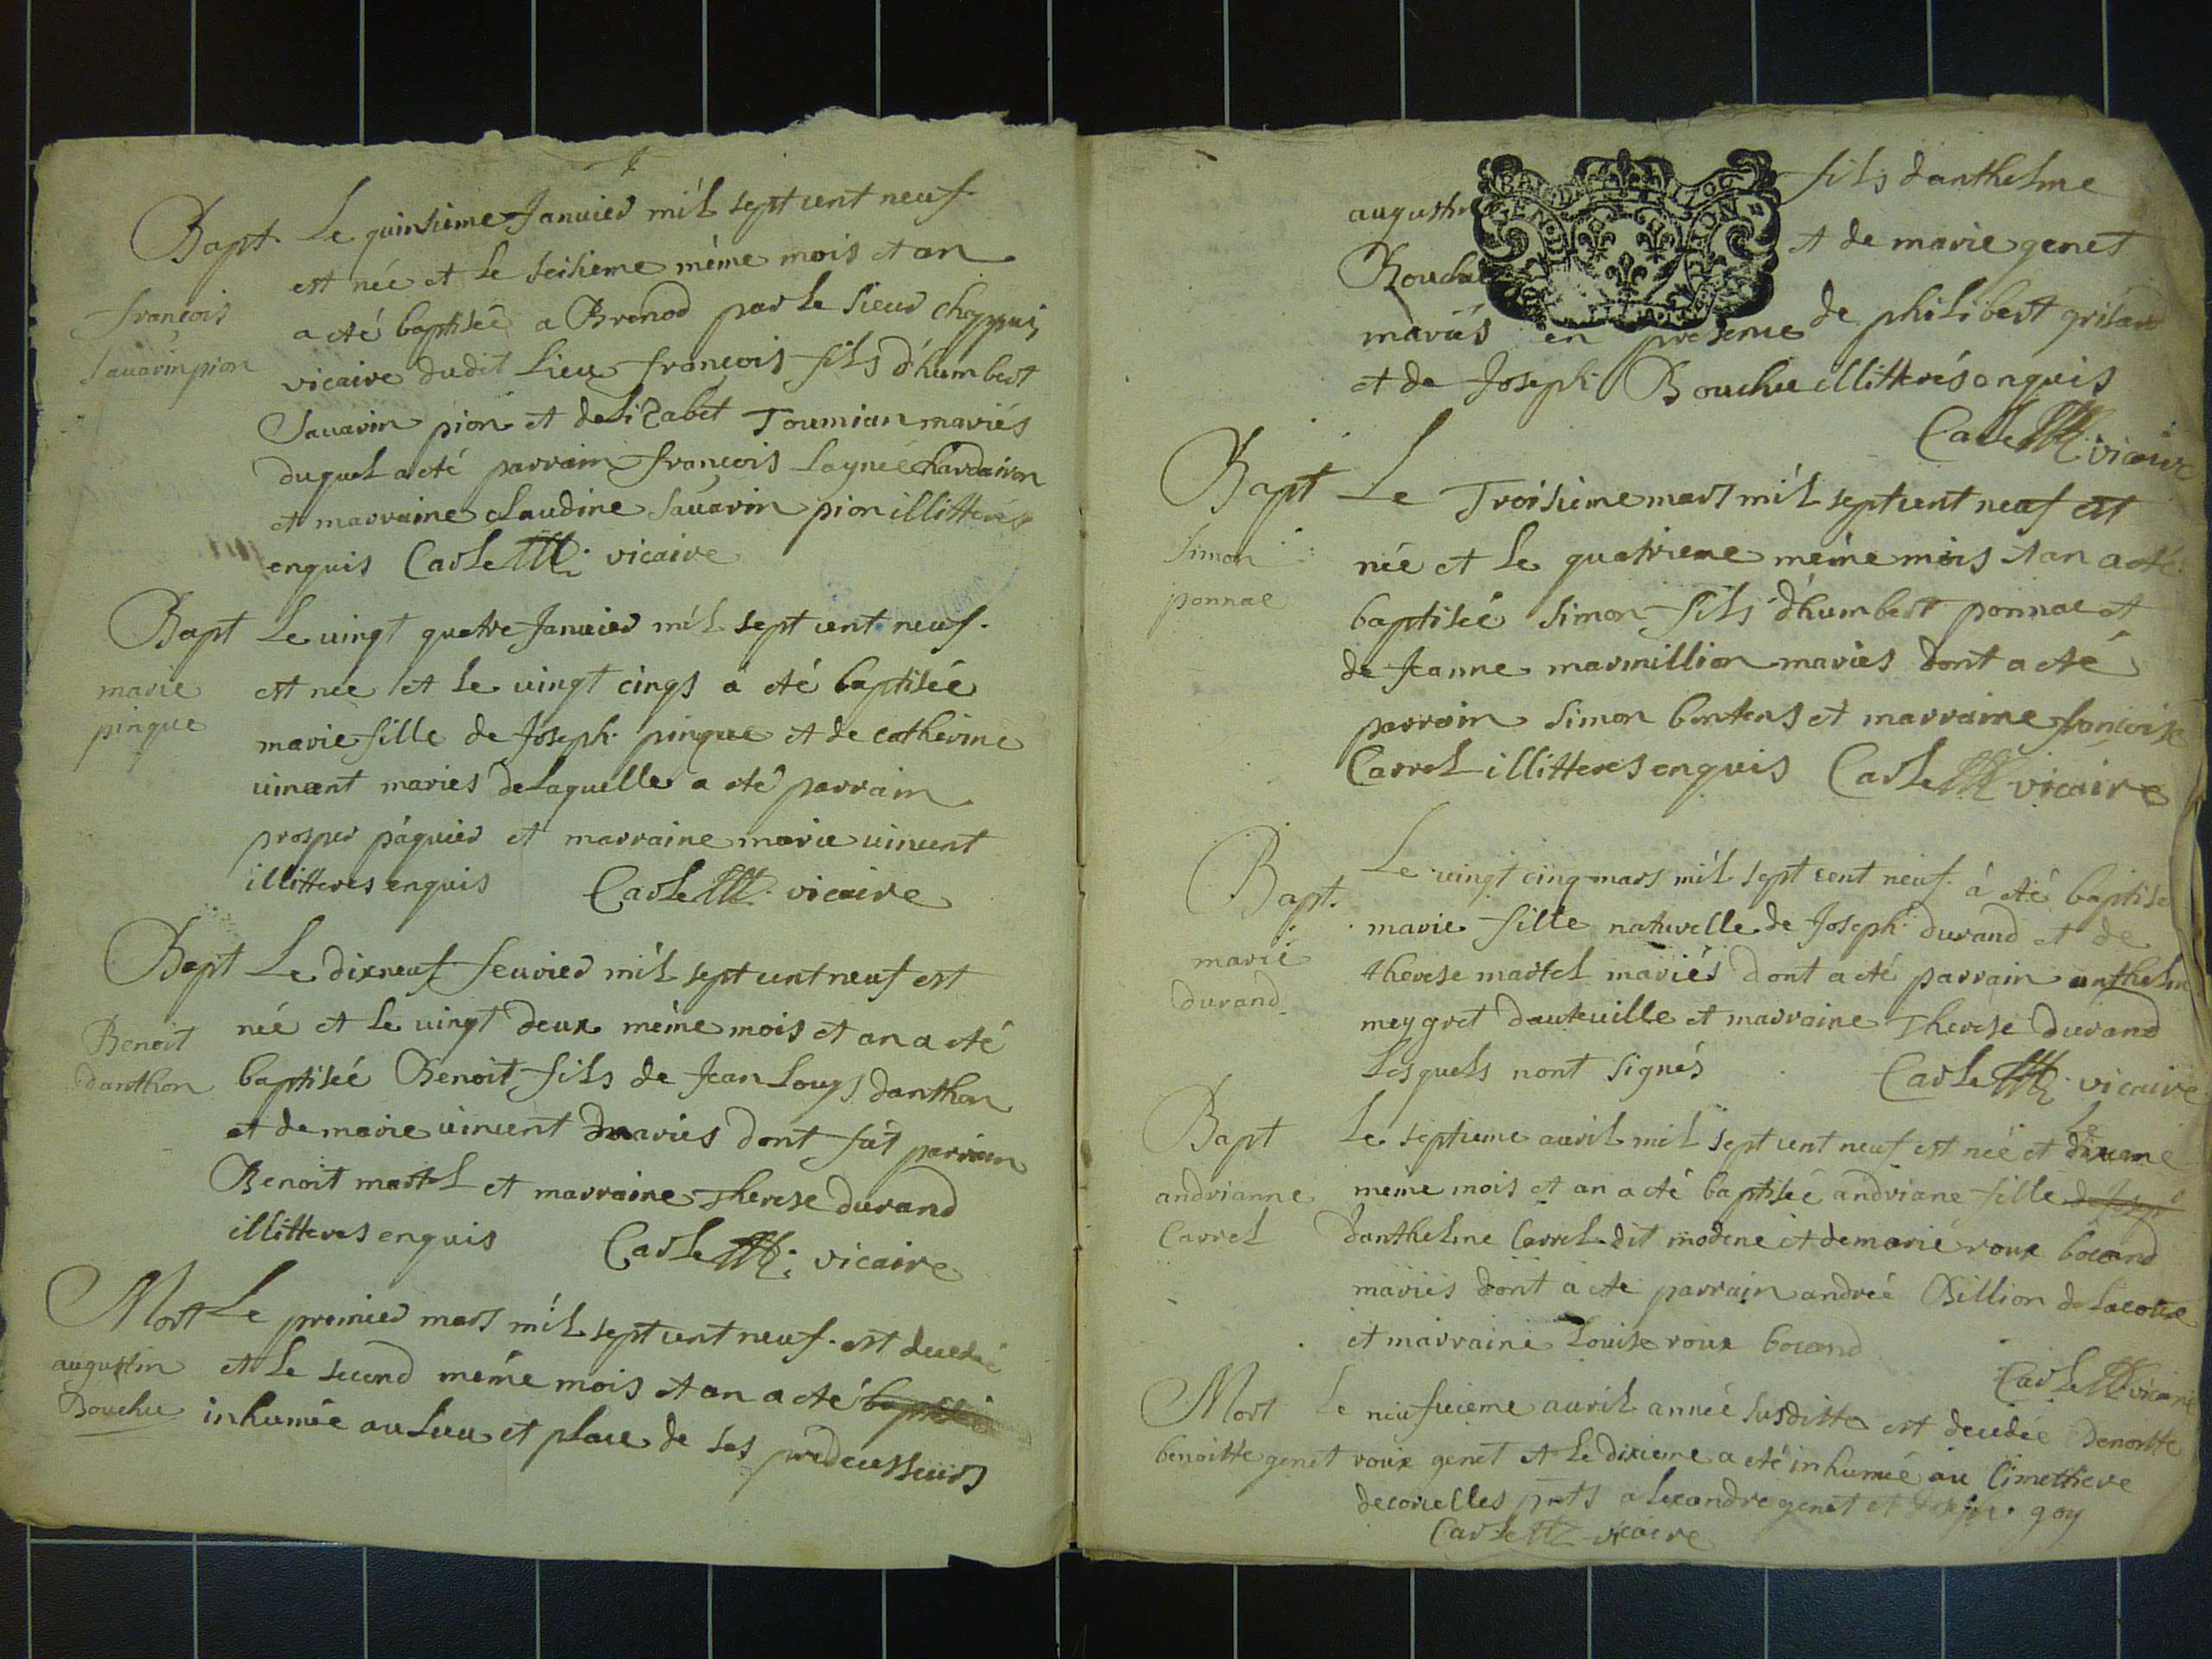 Bapt Le quinsieme Januier mil sept cent neuf
est née et le seisieme même mois et an
françois a eté baptiseé a Brenod par le sieur chappuis
sauarin pion vicaire dudit lieu françois fils d'humbert
Sauarin pion et delizabet Toumian mariés
duquel a eté parrain françois laynéé chardairon
et marraine claudine sauarin pion illitterés
enquis Carle vicaire
Bapt Le uingt quatre Januier mil sept cent neuf
marie est née et le uingt cinqs a eté baptiseé
pingue marie fille de Joseph pingue et de catherine
uincent mariés delaquelle a eté parrain
prosper pàquier et marraine marie uincent
illitteres enquis Carle vicaire
Bapt Le dixneuf feurier mil sept cent neuf est
Benoit née et le uingt deux même mois et an a eté
danthon baptiseé Benoit fils de Jean Louys danthon
et de marie uincent mariés dont fût parrain
Benoit martel et marraine Therese durand
illitteres enquis Carle vicaire
Mort Le premier mars mil sept cent neuf est decedé
augustin et le second même mois et an a eté
Bouchu inhumée au lieu et place de ses predecesseurs
augustin fils danthelme
Bouchu et de marie genet
mariés en presence de philibert grilard
et de Joseph Bouchu illitterés enquis
Carle vicaire
Bapt Le Troisieme mars mil sept cent neuf est
simon née et le quatrieme même mois et an a eté
ponnae baptiseé simon fils d'humbert ponnae et
de Jeanne marmillion mariés dont a eté
parrain simon bentens et marraine françoise
Carrel illitteres enquis Carle vicaire
Bapt. Le uingt cinq mars mil sept cent neuf à eté baptise
marie marie fille naturelle de Joseph durand et de
durand therese martel mariés dont a eté parrain anthelm
meygret dauteuille et marraine Therese durand
lesquels nont signés Carle vicaire
Bapt Le septieme auril mil sept cent neuf est née et le dixieme
andrianne meme mois et an a eté baptiseé andriane fille
Carrel danthelme Carrel dit modene et de marie roux bocand
mariés dont a eté parrain andreé Billion de lacoste
et marraine Louise roux bocand
Carle vicaire
Mort Le neufuieme auril anneé susditte est decedée benoitte
benoitte genet roux genet et le dixieme a eté inhumeé au Cimethiere
decorcelles pnts alexandre genet et goy
Carle vicaire